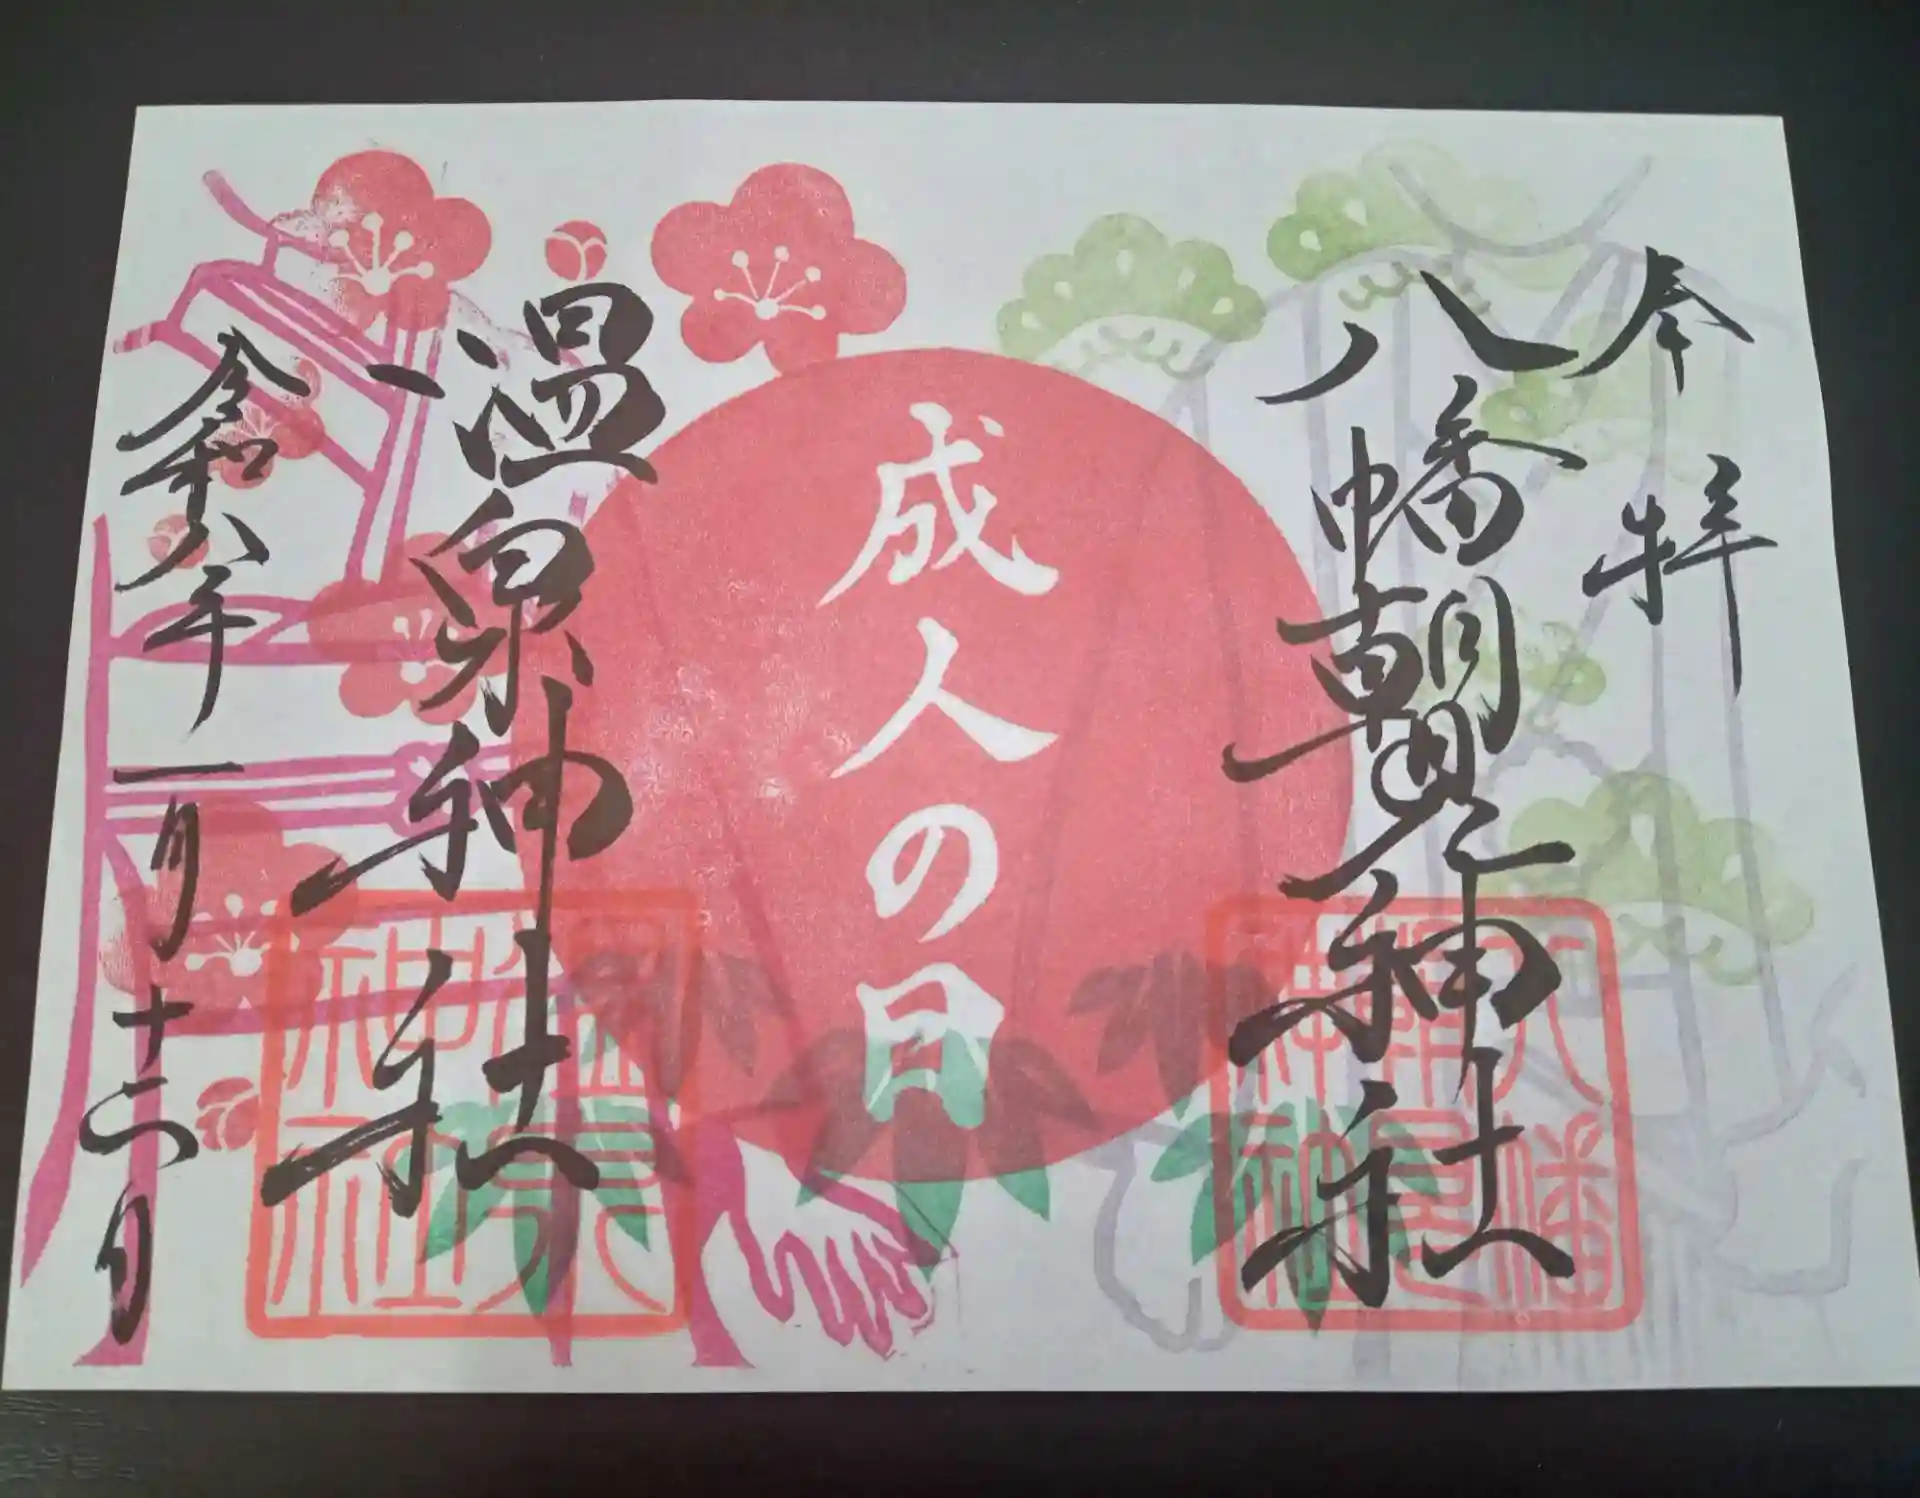 奉拝
八幡朝見神社
成人の日
温泉神社
令和八年一月十二日
八幡朝見神社
温泉神社